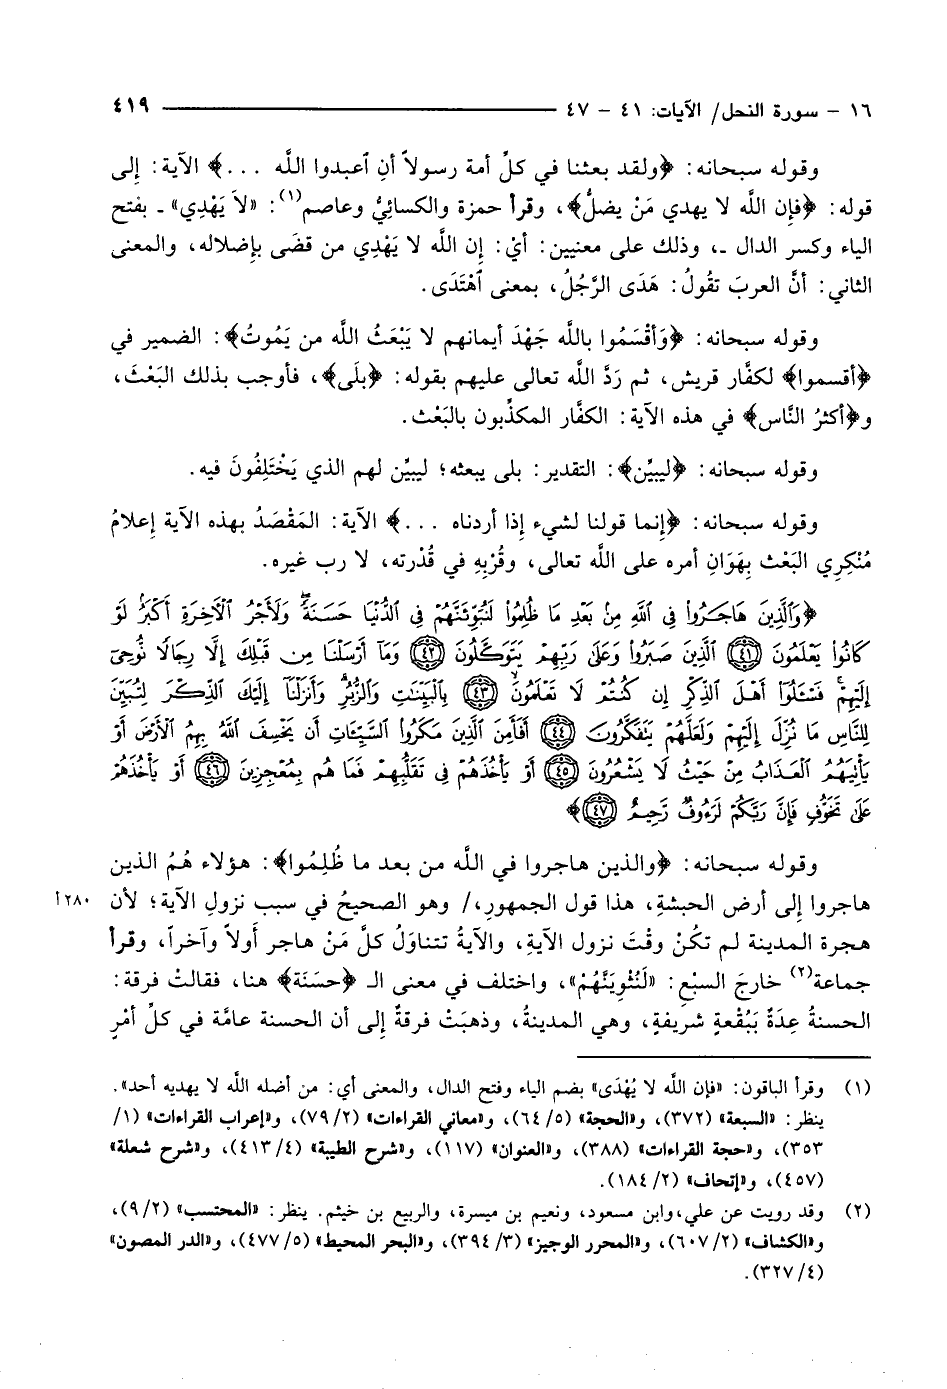 ١٦ - سورة النحل/ الآيات: ٤١ - ٤٧ ٤١٩
وقوله سبحانه: ﴿ولقد بعثنا في كلِّ أمة رسولاً أنِ ٱعبدوا اللَّه ...﴾ الآية: إلى
قوله: ﴿فإن اللَّه لا يهدي مَنْ يضلُّ﴾، وقرأ حمزة والكسائيُّ وعاصم(١): «لاَ يَهْدِي» ـ بفتح
الياء وكسر الدال ـ، وذلك على معنيين: أيْ: إن اللَّه لا يَهْدِي من قضَى بإضلاله، والمعنى
الثاني: أنَّ العربَ تقُولُ: هَدَى الرَّجُلُ، بمعنى ٱهْتَدَى.
وقوله سبحانه: ﴿وَأقْسَمُوا باللَّه جَهْدَ أيمانهم لا يَبْعَثُ اللَّه من يَمُوتُ﴾: الضمير في
﴿أقسموا﴾ لكفَّار قريش، ثم رَدَّ اللَّه تعالى عليهم بقوله: ﴿بلَى﴾، فأوجب بذلك البَعْثَ،
و﴿أكثرُ النَّاس﴾ في هذه الآية: الكفَّار المكذِّبون بالبَعْث.
وقوله سبحانه: ﴿ليبيِّن﴾: التقدير: بلى يبعثه؛ ليبيِّن لهم الذي يَخْتَلِفُونَ فيه.
وقوله سبحانه: ﴿إنما قولنا لشيء إذا أردناه ...﴾ الآية: المَقْصَدُ بهذه الآية إعلامُ
مُنْكِرِي البَعْث بِهَوَانِ أمره على اللَّه تعالى، وقُرْبِهِ في قُدْرته، لا رب غيره.
﴿وَٱلَّذِينَ هَاجَرُوا۟ فِى ٱللَّهِ مِنۢ بَعْدِ مَا ظُلِمُوا۟ لَنُبَوِّئَنَّهُمْ فِى ٱلدُّنْيَا حَسَنَةً ۖ وَلَأَجْرُ ٱلْـَٔاخِرَةِ أَكْبَرُ ۚ لَوْ
كَانُوا۟ يَعْلَمُونَ ﴿٤١﴾ ٱلَّذِينَ صَبَرُوا۟ وَعَلَىٰ رَبِّهِمْ يَتَوَكَّلُونَ ﴿٤٢﴾ وَمَآ أَرْسَلْنَا مِن قَبْلِكَ إِلَّا رِجَالًا نُّوحِىٓ
إِلَيْهِمْ ۚ فَسْـَٔلُوٓا۟ أَهْلَ ٱلذِّكْرِ إِن كُنتُمْ لَا تَعْلَمُونَ ﴿٤٣﴾ بِٱلْبَيِّنَـٰتِ وَٱلزُّبُرِ ۗ وَأَنزَلْنَآ إِلَيْكَ ٱلذِّكْرَ لِتُبَيِّنَ
لِلنَّاسِ مَا نُزِّلَ إِلَيْهِمْ وَلَعَلَّهُمْ يَتَفَكَّرُونَ ﴿٤٤﴾ أَفَأَمِنَ ٱلَّذِينَ مَكَرُوا۟ ٱلسَّيِّـَٔاتِ أَن يَخْسِفَ ٱللَّهُ بِهِمُ ٱلْأَرْضَ أَوْ
يَأْتِيَهُمُ ٱلْعَذَابُ مِنْ حَيْثُ لَا يَشْعُرُونَ ﴿٤٥﴾ أَوْ يَأْخُذَهُمْ فِى تَقَلُّبِهِمْ فَمَا هُم بِمُعْجِزِينَ ﴿٤٦﴾ أَوْ يَأْخُذَهُمْ
عَلَىٰ تَخَوُّفٍ فَإِنَّ رَبَّكُمْ لَرَءُوفٌ رَّحِيمٌ ﴿٤٧﴾﴾
وقوله سبحانه: ﴿والذين هاجروا في اللَّه من بعد ما ظُلِمُوا﴾: هؤلاء هُمُ الذين
هاجروا إلى أرض الحبشةِ، هذا قول الجمهورِ،/ وهو الصحيحُ في سبب نزولِ الآية؛ لأن ٢٨٠أ
هجرة المدينة لم تكُنْ وقْتَ نزول الآيةِ، والآيةُ تتناوَلُ كلَّ مَنْ هاجر أَولاً وآخراً، وقرأ
جماعة(٢) خارجَ السبْعِ: «لَنُثْوِيَنَّهُمْ»، واختلف في معنى الـ ﴿حسَنَة﴾ هنا، فقالتْ فرقة:
الحسنةُ عِدَةٌ بِبُقْعةٍ شرِيفةٍ، وهي المدينةُ، وذهبَتْ فرقةٌ إلى أن الحسنة عامَّة في كلِّ أمْرٍ
(١) وقرأ الباقون: «فإن اللَّه لا يُهْدَى» بضم الياء وفتح الدال، والمعنى أي: من أضله اللَّه لا يهديه أحد».
ينظر: «السبعة» (٣٧٢)، و«الحجة» (٦٤/٥)، و«معاني القراءات» (٧٩/٢)، و«إعراب القراءات» (١/
٣٥٣)، و«حجة القراءات» (٣٨٨)، و«العنوان» (١١٧)، و«شرح الطيبة» (٤١٣/٤)، و«شرح شعلة»
(٤٥٧)، و«إتحاف» (١٨٤/٢).
(٢) وقد رويت عن علي،وابن مسعود، ونعيم بن ميسرة، والربيع بن خيثم. ينظر: «المحتسب» (٩/٢)،
و«الكشاف» (٦٠٧/٢)، و«المحرر الوجيز» (٣٩٤/٣)، و«البحر المحيط» (٤٧٧/٥)، و«الدر المصون»
(٣٢٧/٤).